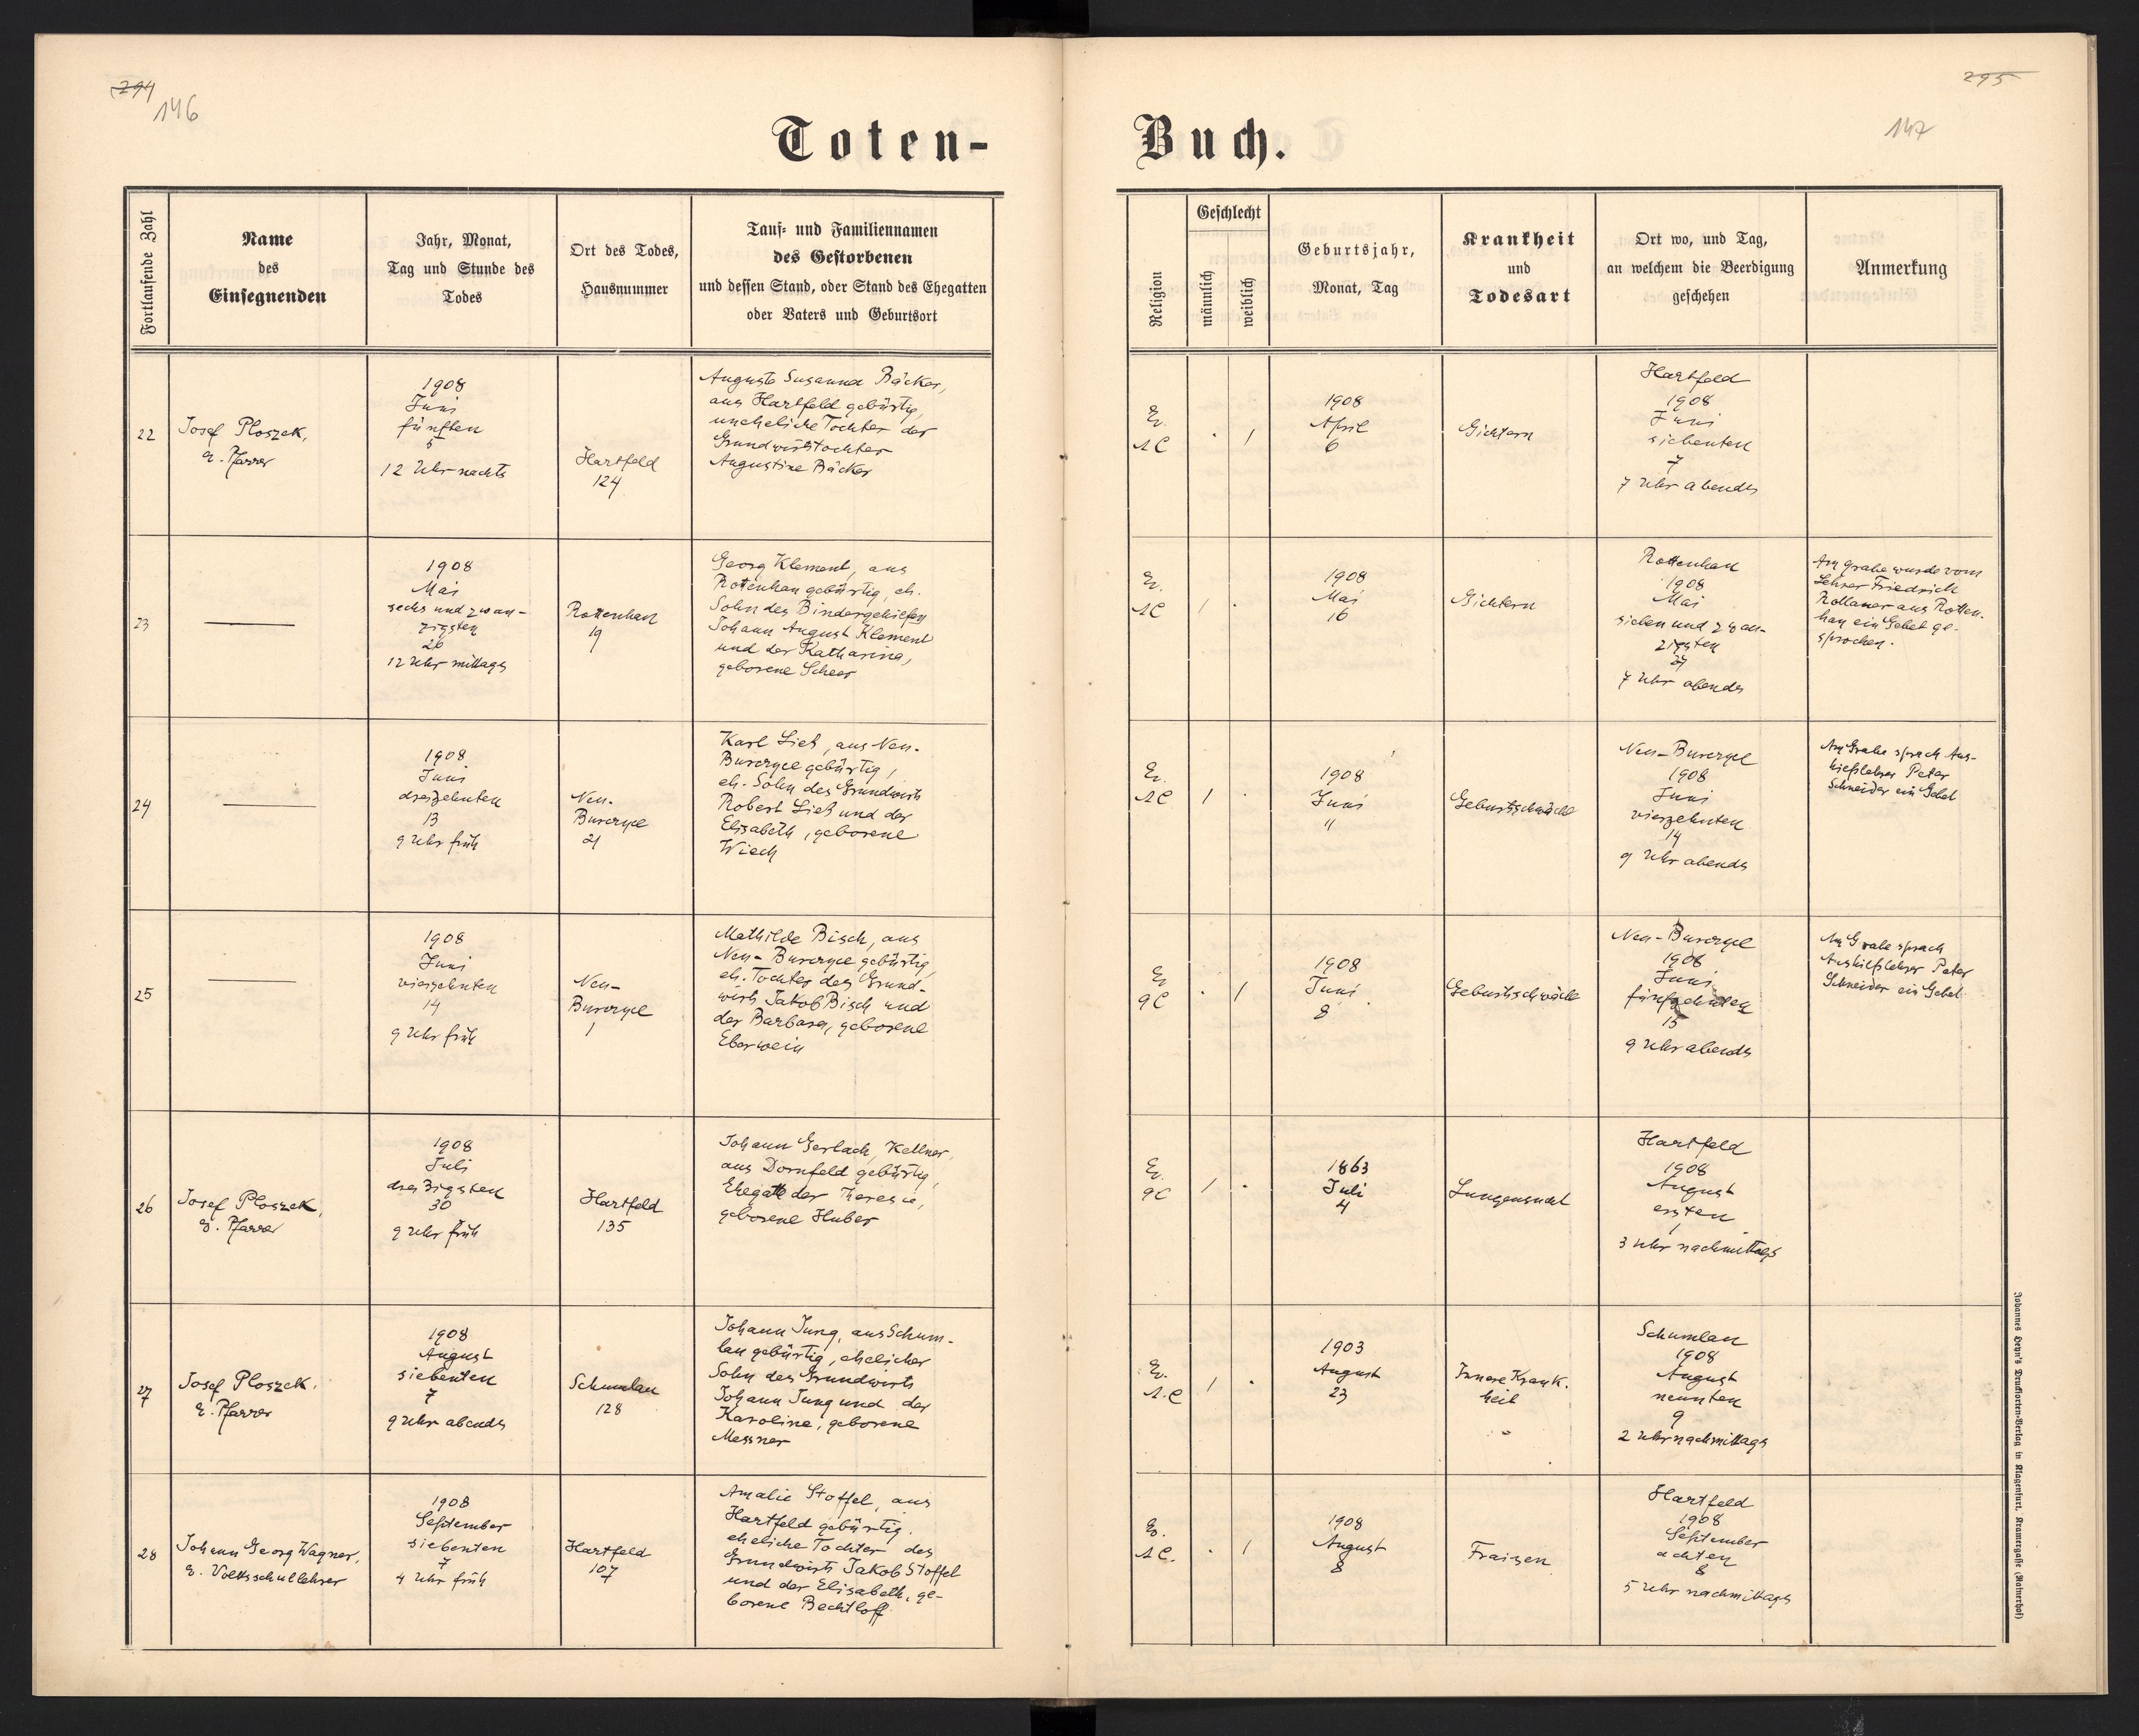 294
146
Toten-
Fortlaufende Zahl
Name
des
Einsegnenden
Jahr, Monat,
Tag und Stunde des
Todes
Ort des Todes,
Hausnummer
Tauf- und Familiennamen
des Gestorbenen
und dessen Stand, oder Stand des Ehegatten
oder Vaters und Geburtsort
22
Josef Ploszek,
e. Pfarrer
1908
Juni
fünften
5
12 Uhr nachts
Hartfeld
124
Auguste Susanna Bäcker,
aus Hartfeld gebürtig,
uneheliche Tochter der
Grundwirtstochter
Augustine Bäcker
23
1908
Mai
sechs und zwan-
zigsten
26
12 Uhr mittags
Rottenhan
19
Georg Klement, aus
Rottenhan gebürtig, eh.
Sohn des Bindergehilfen
Johann August Klement
und der Katharina,
geborene Scheer
24
1908
Juni
dreizehnten
13
9 Uhr früh
Neu-
Burczyce
21
Karl Lieb, aus Neu-
Burczyce gebürtig,
eh. Sohn des Grundwirts
Robert Lieb und der
Elisabeth, geborene
Wiech
25
1908
Juni
vierzehnten
14
9 Uhr früh
Neu-
Burczyce
1
Mathilde Bisch, aus
Neu-Burczyce gebürtig,
eh. Tochter des Grund-
wirts Jakob Bisch und
der Barbara, geborene
Eberwein
26
Josef Ploszek,
e. Pfarrer
1908
Juli
dreißigsten
30
9 Uhr früh
Hartfeld
135
Johann Gerlach, Kellner,
aus Dornfeld gebürtig,
Ehegatte der Theresia,
geborene Huber
27
Josef Ploszek,
e. Pfarrer
1908
August
siebenten
7
9 Uhr abends
Schumlau
128
Johann Jung, aus Schum-
lau gebürtig, ehelicher
Sohn des Grundwirts
Johann Jung und der
Karoline, geborene
Messner
28
Johann Georg Wagner,
e. Volksschullehrer
1908
September
siebenten
7
4 Uhr früh
Hartfeld
107
Amalie Stoffel, aus
Hartfeld gebürtig,
eheliche Tochter des
Grundwirts Jakob Stoffel
und der Elisabeth, ge-
borene Bechtloff
295
147
Buch.
Religion
Geschlecht
männlich
weiblich
Geburtsjahr,
Monat, Tag
Krankheit
und
Todesart
Ort wo, und Tag,
an welchem die Beerdigung
geschehen
Anmerkung
Ev.
AC
1
1908
April
6
Gichtern
Hartfeld
1908
Juni
siebenten
7
7 Uhr abends
Ev.
AC
1
1908
Mai
16
Gichtern
Rottenhan
1908
Mai
sieben und zwan-
zigsten
27
7 Uhr abends
Am Grabe wurde vom
Lehrer Friedrich
Rollauer aus Rotten-
han ein Gebet ge-
sprochen.
Ev.
AC
1
1908
Juni
11
Geburtsschwäche
Neu-Burczyce
1908
Juni
vierzehnten
14
9 Uhr abends
Am Grabe sprach Aus-
hilfslehrer Peter
Schneider ein Gebet
Ev.
AC
1
1908
Juni
8
Geburtsschwäche
Neu-Burczyce
1908
Juni
fünfzehnten
15
9 Uhr abends
Am Grabe sprach
Aushilfslehrer Peter
Schneider ein Gebet
Ev.
AC
1
1863
Juli
4
Lungensucht
Hartfeld
1908
August
ersten
1
3 Uhr nachmittags
Ev.
A.C
1
1903
August
23
Innere Krank-
heit
Schumlau
1908
August
neunten
9
2 Uhr nachmittags
Ev.
AC.
1
1908
August
8
Fraisen
Hartfeld
1908
September
achten
8
5 Uhr nachmittags
Johannes Heyn's Drucksorten-Verlag in Klagenfurt, Kramergasse (Rainerhof)